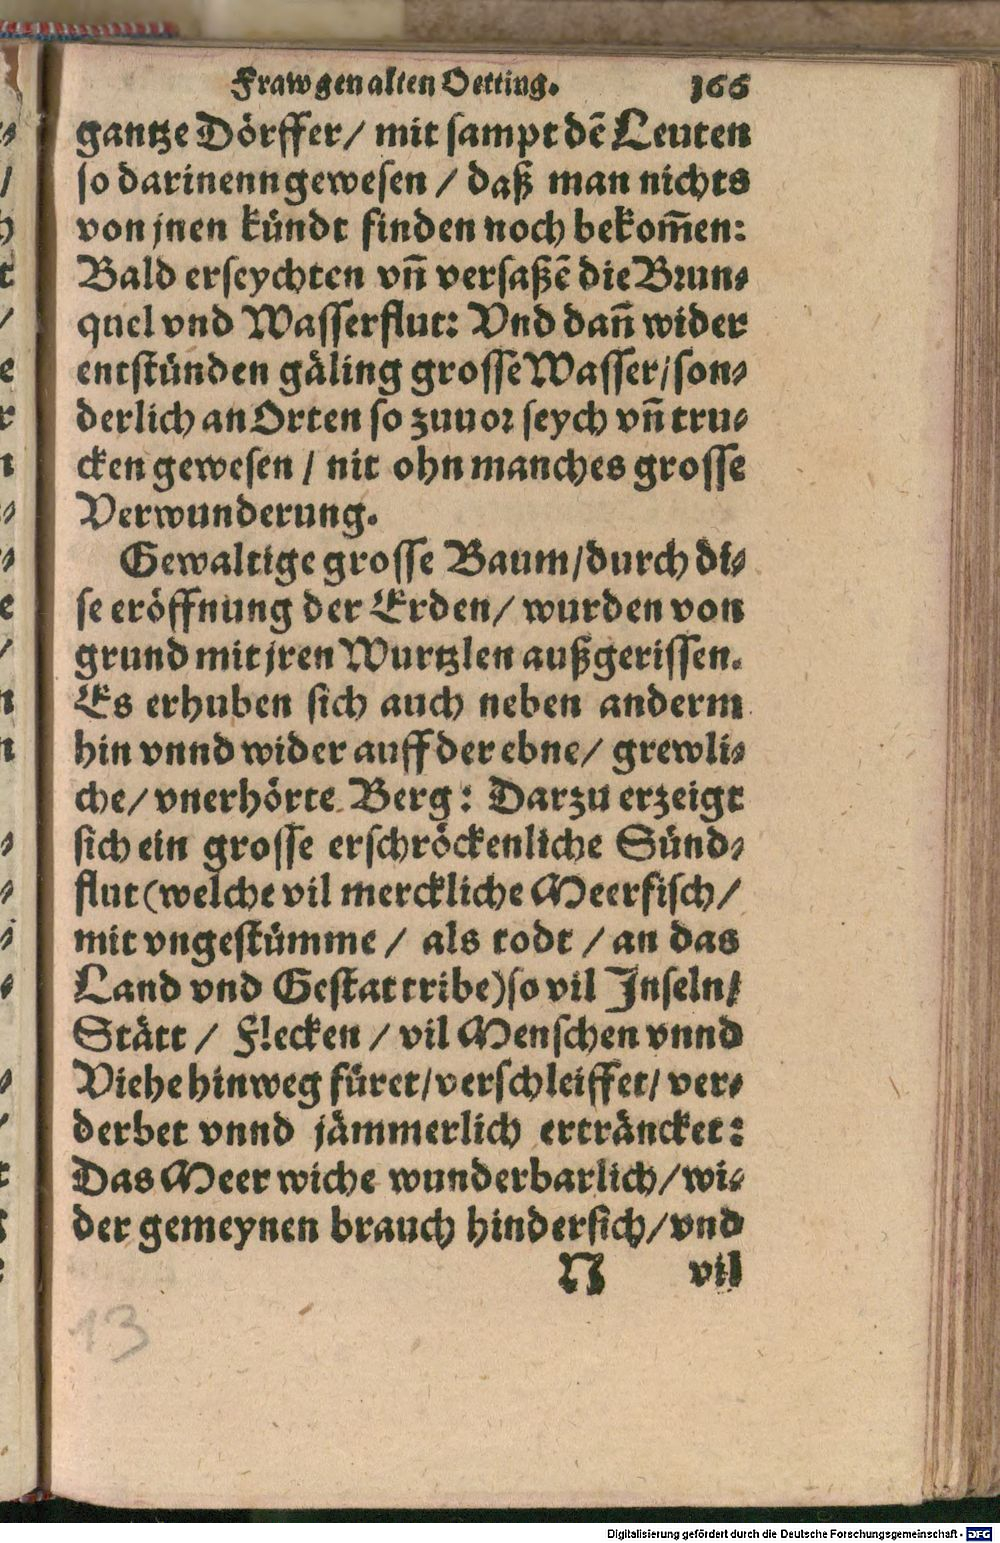 Fraw gen alten Oetting. 166
gantze Dörffer/ mit sampt dē Leuten
so darinenn gewesen / daß man nichts
von jnen kündt finden noch bekom̄en:
Bald erseychten vn̄ versaßē die Brun⸗
quel vnd Wasserflut: Vnd dan̄ wider
entstünden gäling grosse Wasser/ son⸗
derlich an Orten so zuuor seych vn̄ tru⸗
cken gewesen / nit ohn manches grosse
Verwunderung.
Gewaltige grosse Baum/ durch di⸗
se eröffnung der Erden/ wurden von
grund mit jren Wurtzlen außgerissen.
Es erhuben sich auch neben anderm
hin vnnd wider auff der ebne/ grewli⸗
che/ vnerhörte Berg: Darzu erzeigt
sich ein grosse erschröckenliche Sünd⸗
flut (welche vil merckliche Meerfisch/
mit vngestümme / als todt / an das
Land vnd Gestat tribe) so vil Inseln/
Stätt / Flecken / vil Menschen vnnd
Viehe hinweg füret/ verschleiffet/ ver⸗
derbet vnnd jämmerlich ertråncket:
Das Meer wiche wunderbarlich/ wi⸗
der gemeynen brauch hindersich/ vnd
N vil
13
Digitalisierung gefördert durch die Deutsche Forschungsgemeinschaft - DFG